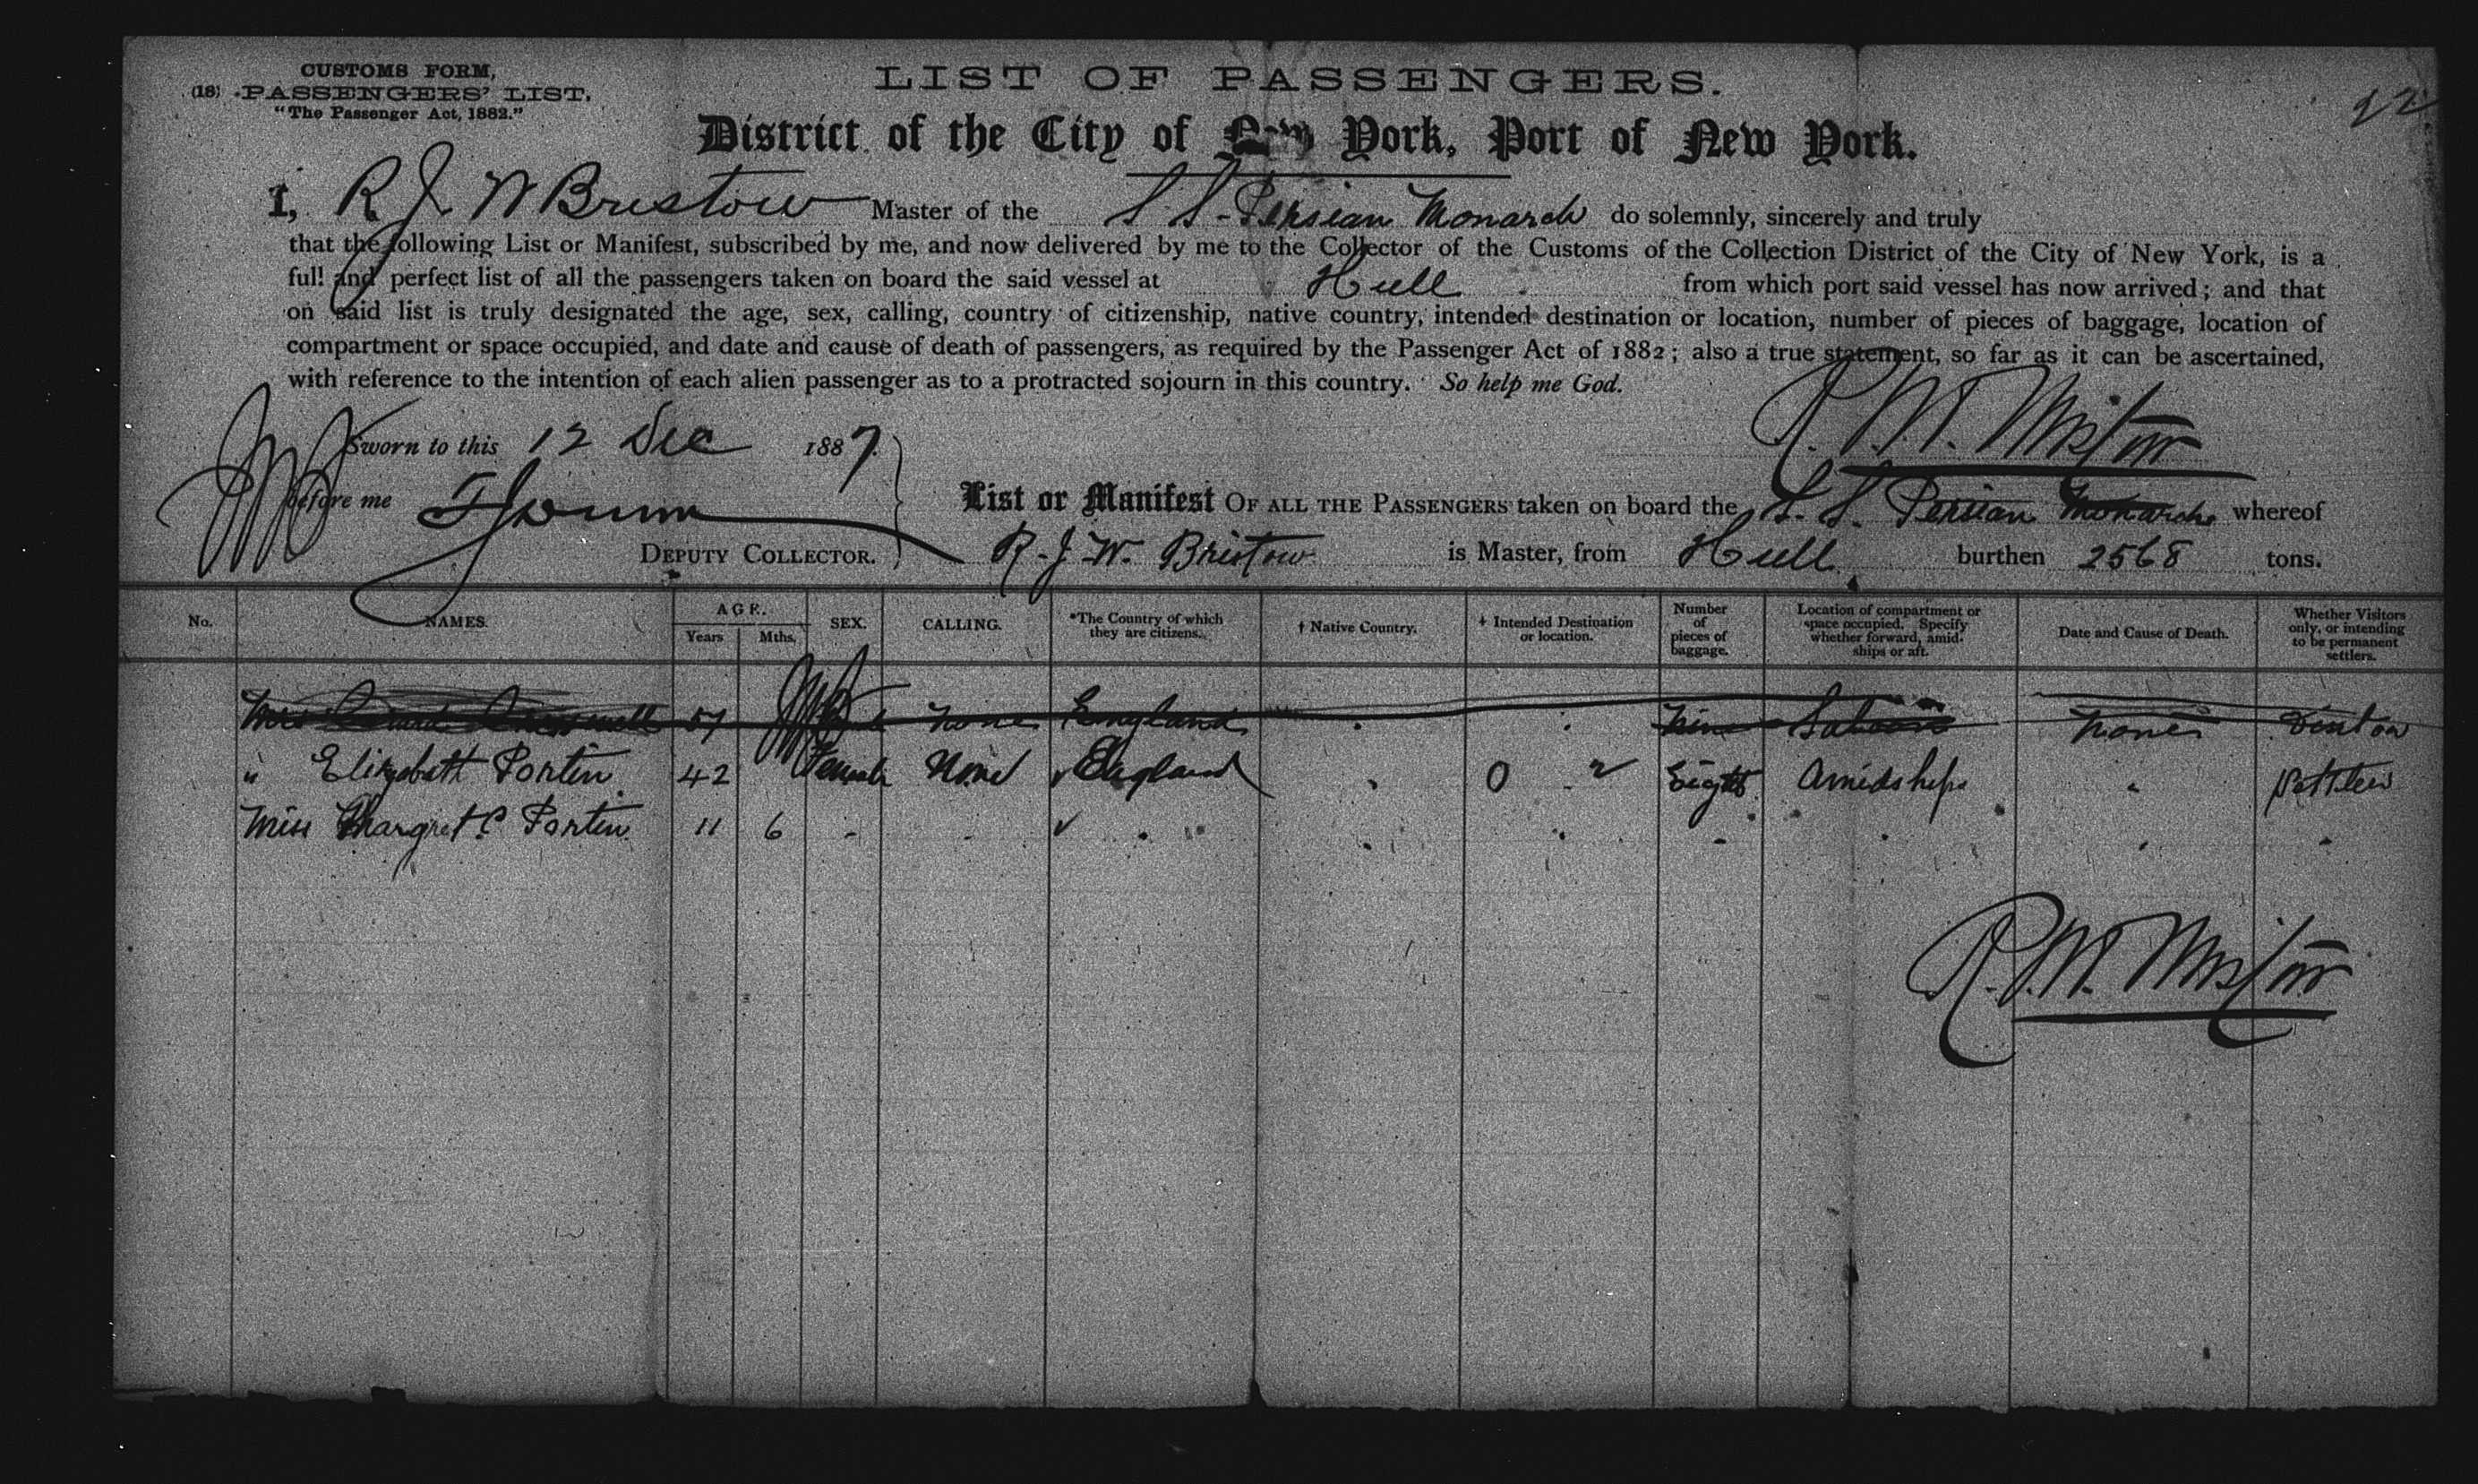 CUSTOMS FORM,
(18) PASSENGERS' LIST.
"The Passenger Act, 1882."
LIST OF PASSENGERS.
22
District of the City of New York, Port of New York.
I, R. J. W Bristow Master of the S. S. Persian Monarch do solemnly, sincerely and truly
that the following List or Manifest, subscribed by me, and now delivered by me to the Collector of the Customs of the Collection District of the City of New York, is a
full and perfect list of all the passengers taken on board the said vessel at Hull from which port said vessel has now arrived; and that
on said list is truly designated the age, sex, calling, country of citizenship, native country, intended destination or location, number of pieces of baggage, location of
compartment or space occupied, and date and cause of death of passengers, as required by the Passenger Act of 1882; also a true statement, so far as it can be ascertained,
with reference to the intention of each alien passenger as to a protracted sojourn in this country. So help me God.
Sworn to this 12 Dec 1887.
before me
DEPUTY COLLECTOR.
List or Manifest OF ALL THE PASSENGERS taken on board the S. S. Persian Monarch whereof
R. J. W. Bristow is Master, from Hull burthen 2568 tons.
No. NAMES. AGE. Years Mths. SEX. CALLING. *The Country of which they are citizens. † Native Country. ‡ Intended Destination or location. Number of pieces of baggage. Location of compartment or space occupied. Specify whether forward, amidships or aft. Date and Cause of Death. Whether Visitors only, or intending to be permanent settlers.
Mrs 57 None England Nine Saloon None
" Elizabeth Portin 42 Female None England " 0 " Eight Amidships " Settlers
Miss Margret C Portin 11 6 " " " " " " " " " "